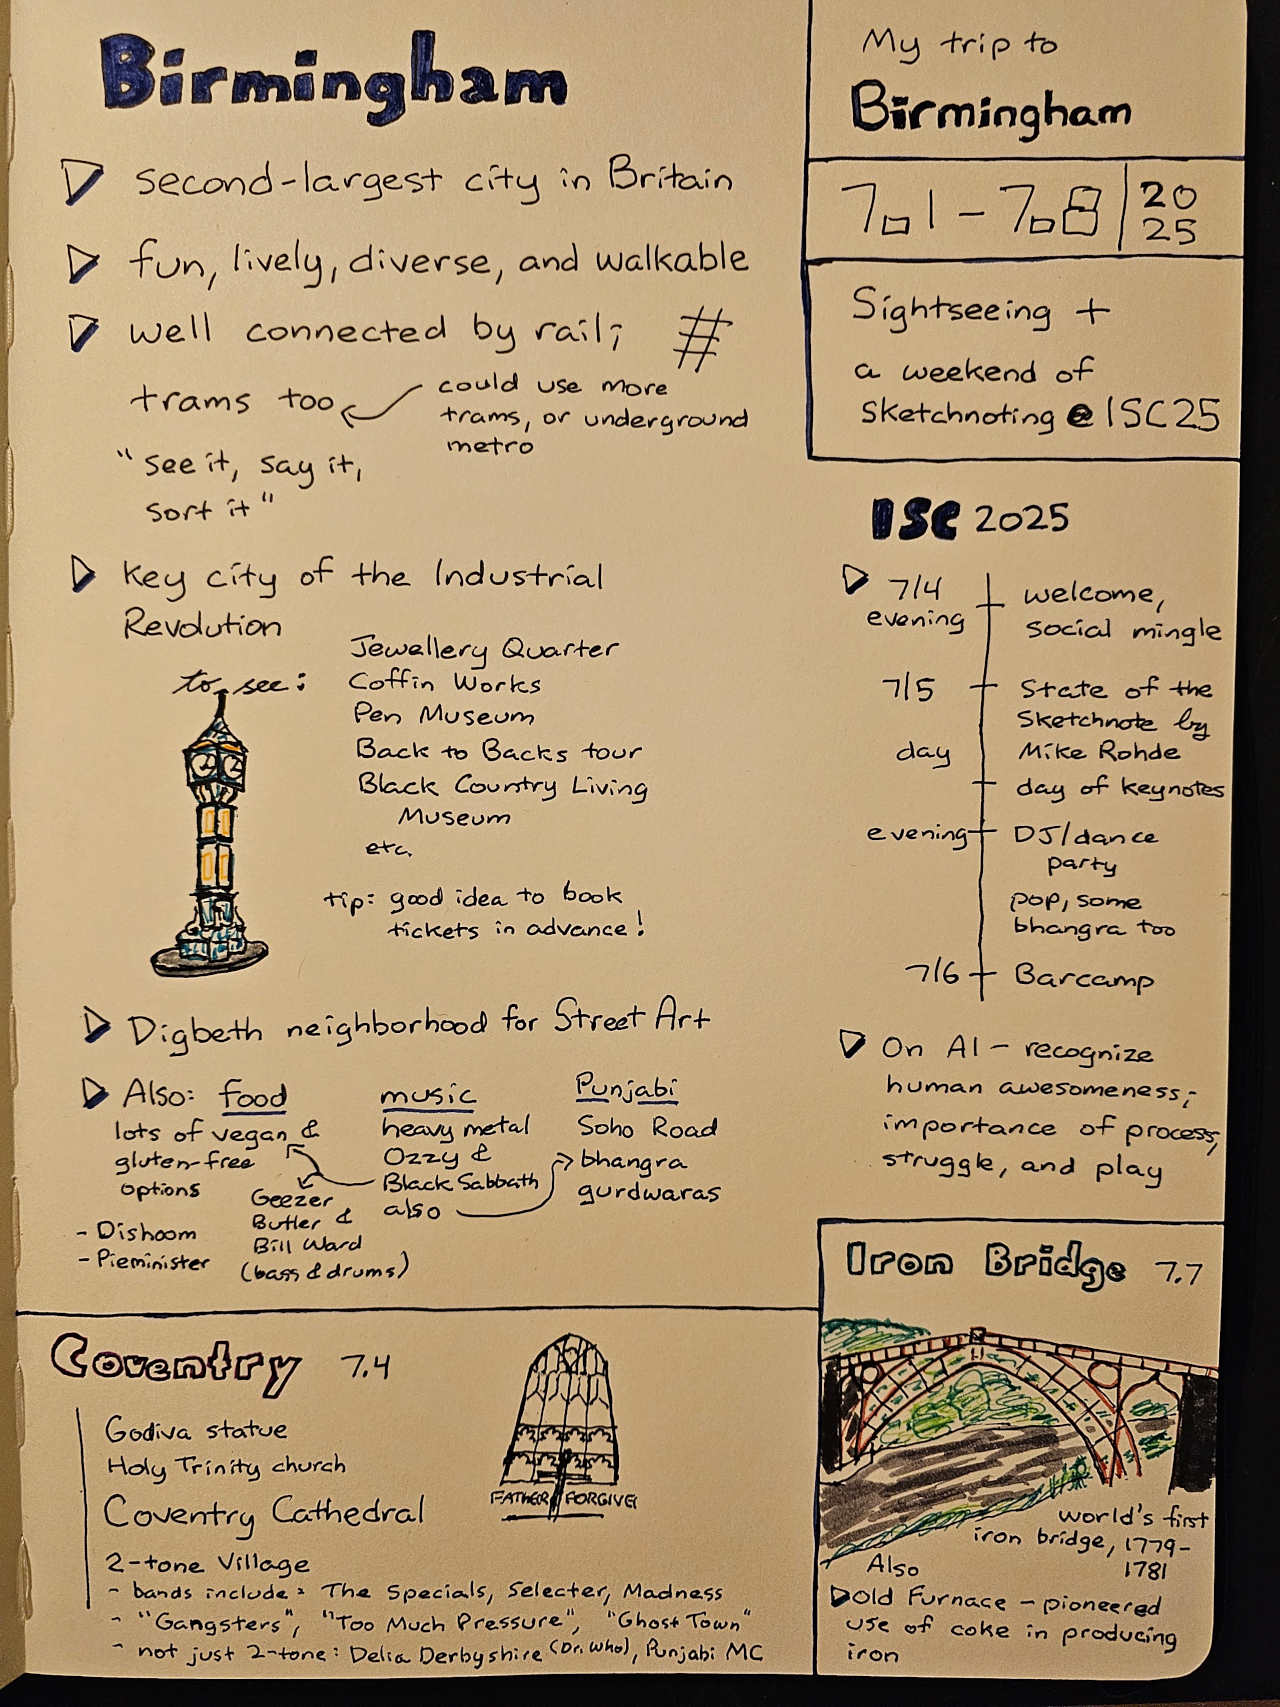 Birmingham
second-largest city in Britain
fun, lively, diverse, and walkable
well connected by rail;
trams too
could use more
trams, or underground
metro
"see it, say it,
sort it"
key city of the Industrial
Revolution
to see:
Jewellery Quarter
Coffin Works
Pen Museum
Back to Backs tour
Black Country Living
Museum
etc.
tip: good idea to book
tickets in advance!
Digbeth neighborhood for Street Art
Also: food
lots of vegan &
gluten-free
options
- Dishoom
- Pieminister
music
heavy metal
Ozzy &
Black Sabbath
also
Geezer
Butler &
Bill Ward
(bass & drums)
Punjabi
Soho Road
bhangra
gurdwaras
My trip to
Birmingham
7.1 - 7.8
20
25
Sightseeing +
a weekend of
sketchnoting @ ISC25
ISC 2025
7/4
evening
welcome,
social mingle
7/5
day
State of the
Sketchnote by
Mike Rohde
day of keynotes
evening
DJ/dance
party
pop, some
bhangra too
7/6
Barcamp
On AI - recognize
human awesomeness;
importance of process,
struggle, and play
Coventry 7.4
Godiva statue
Holy Trinity church
Coventry Cathedral
2-tone Village
- bands include: The Specials, Selecter, Madness
- "Gangsters", "Too Much Pressure", "Ghost Town"
- not just 2-tone: Delia Derbyshire (Dr. Who), Punjabi MC
FATHER FORGIVE
Iron Bridge 7.7
world's first
iron bridge, 1779-
1781
Also
Old Furnace - pioneered
use of coke in producing
iron